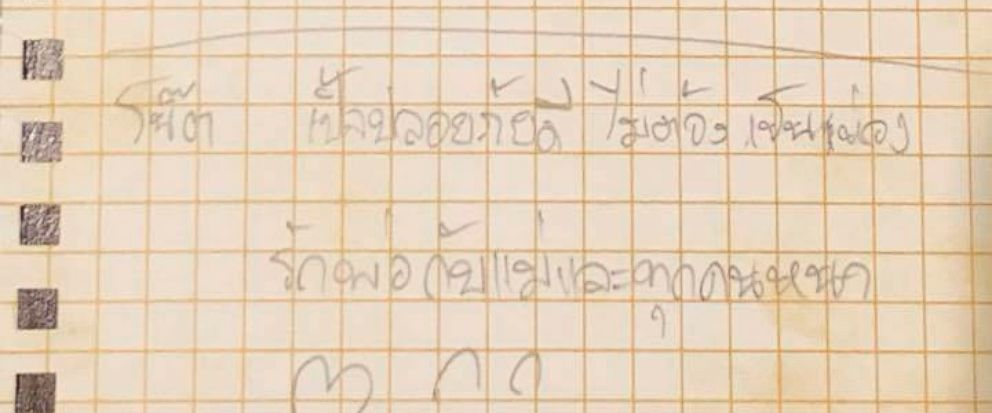 โน๊ต ปลอยภัยดี ไม่ต้อง เป็นห่วง
รักพ่อกับแม่และทุกคน